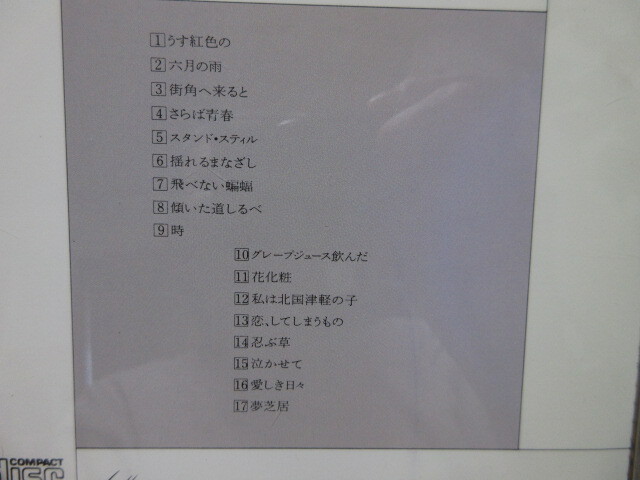 1 うす紅色の
2 六月の雨
3 街角へ来ると
4 さらば青春
5 スタンド・スティル
6 揺れるまなざし
7 飛べない蝙蝠
8 傾いた道しるべ
9 時
10 グレープジュース飲んだ
11 花化粧
12 私は北国津軽の子
13 恋、してしまうもの
14 忍ぶ草
15 泣かせて
16 愛しき日々
17 夢芝居
COMPACT
disc